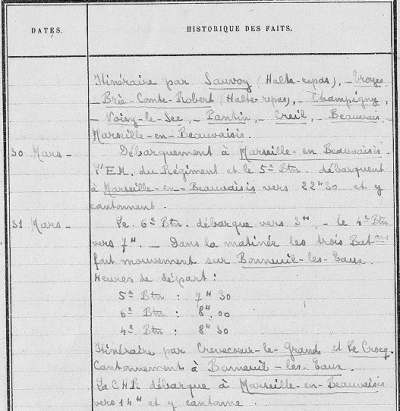 DATES.
HISTORIQUE DES FAITS.
Itinéraire par Sauvoy (Halte-repas), Troyes
Brie-Comte-Robert (Halte-repas), Champigny,
Noisy-le-Sec, Pantin, Creil, Beauvais
Marseille-en-Beauvaisis.
30 Mars - Débarquement à Marseille-en-Beauvaisis.
L'E.M. du Régiment et le 5e Btn. débarquent
à Marseille-en-Beauvaisis vers 22H30 et y
cantonnent.
31 Mars - Le 6e Btn. débarque vers 3H. - le 4e Btn
vers 7H. - Dans la matinée les trois Batons
font mouvement sur Bonneuil-les-Eaux.
Heures de départ :
5e Btn : 7H 30
6e Btn : 8H,00
4e Btn : 8H 30
Itinéraire par Crevecoeur-le-Grand et Le Crocq.
Cantonnement à Bonneuil-les-Eaux.
La C.H.R débarque à Marseille-en-Beauvaisis
vers 14H et y cantonne.